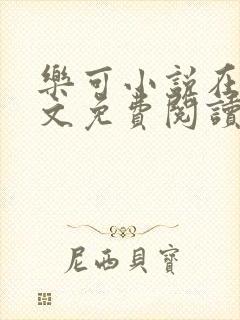 樂可小說在
文免費閱讀
尼西貝寶